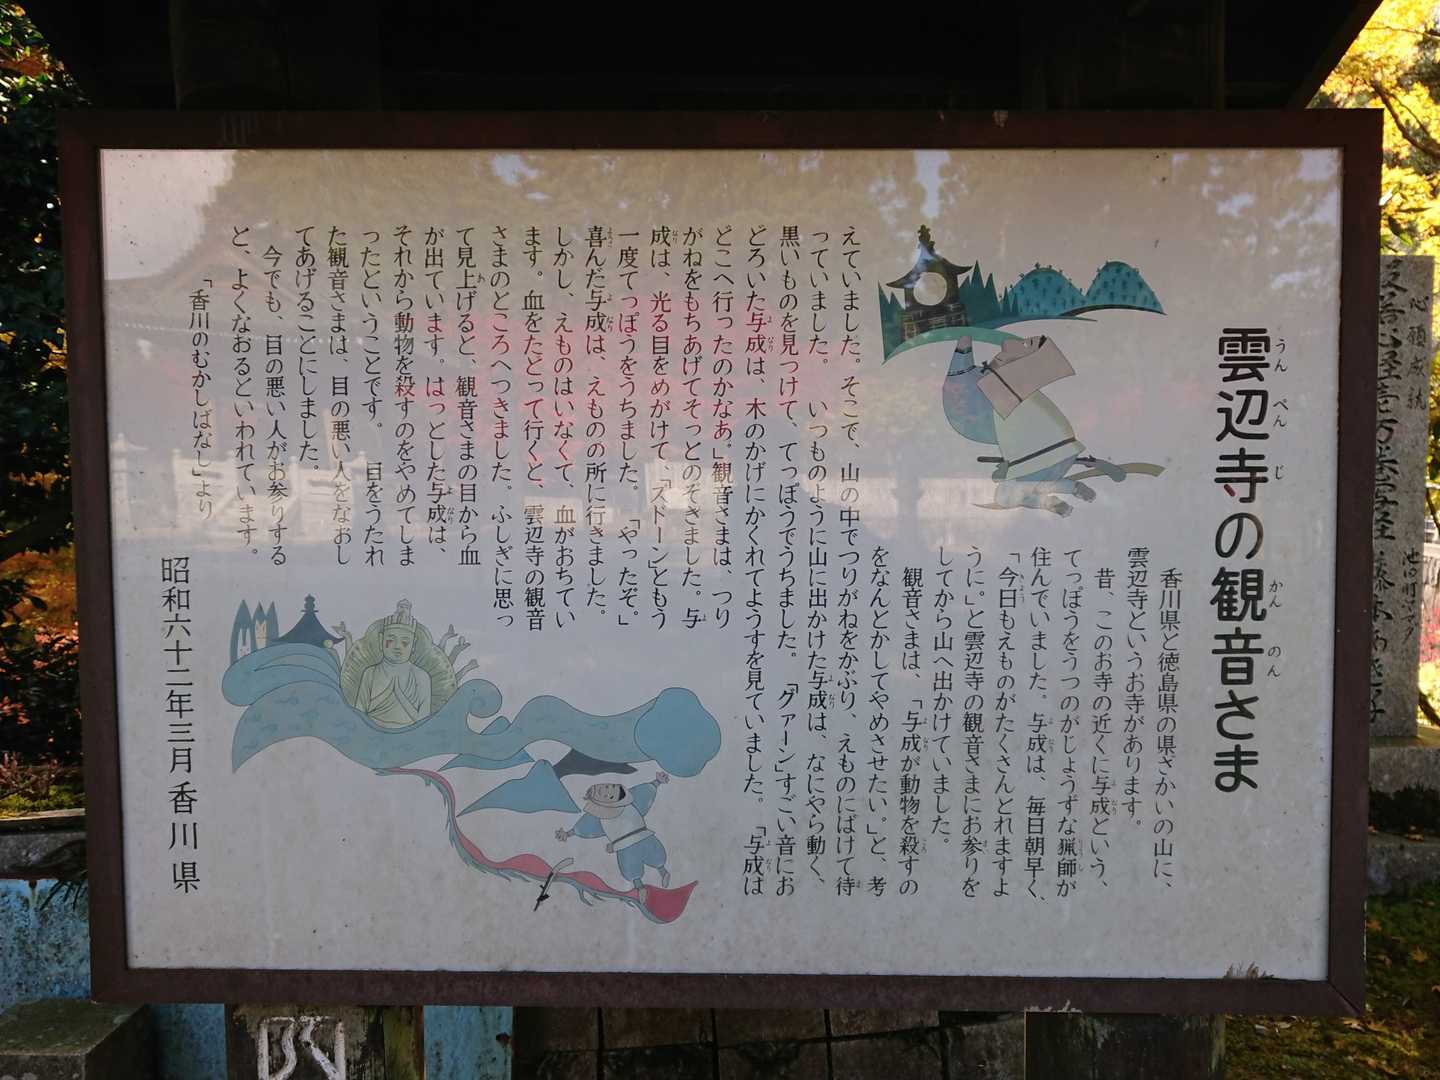 雲辺寺の観音さま
香川県と徳島県の県ざかいの山に、
雲辺寺というお寺があります。
昔、このお寺の近くに与成という、
てっぽうをうつのがじょうずな猟師が
住んでいました。与成は、毎日朝早く、
「今日もえものがたくさんとれますよ
うに。」と雲辺寺の観音さまにお参りを
してから山へ出かけていました。
観音さまは、「与成が動物を殺すの
をなんとかしてやめさせたい。」と、考
えていました。そこで、山の中でつりがねをかぶり、えものにばけて待
っていました。いつものように山に出かけた与成は、なにやら動く、
黒いものを見つけて、てっぽうでうちました。「グァーン」すごい音にお
どろいた与成は、木のかげにかくれてようすを見ていました。「与成は
どこへ行ったのかなあ。」観音さまは、つり
がねをもちあげてそっとのぞきました。与
成は、光る目をめがけて、「ズドーン」ともう
一度てっぽうをうちました。「やったぞ。」
喜んだ与成は、えものの所に行きました。
しかし、えものはいなくて、血がおちてい
ます。血をたどって行くと、雲辺寺の観音
さまのところへつきました。ふしぎに思っ
て見上げると、観音さまの目から血
が出ています。はっとした与成は、
それから動物を殺すのをやめてしま
ったということです。目をうたれ
た観音さまは、目の悪い人をなおし
てあげることにしました。
今でも、目の悪い人がお参りする
と、よくなおるといわれています。
「香川のむかしばなし」より
昭和六十二年三月 香川県
心願成就